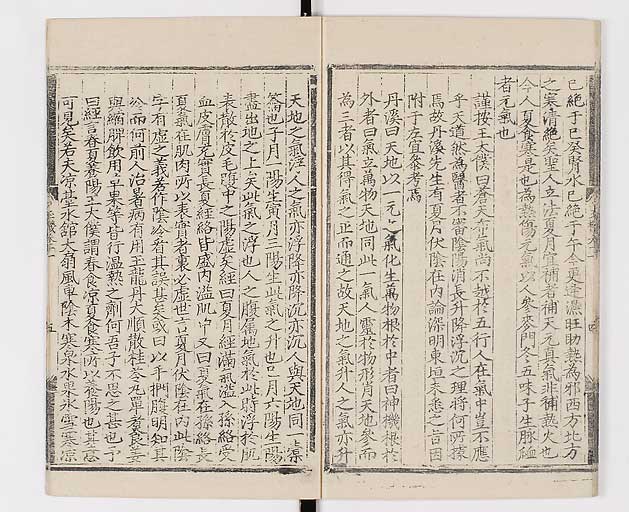 已絶于巳癸腎水已絶于午今更逢濕旺助熱為邪西方北方
之寒清絶矣聖人立法夏月宜補者補天元真氣非補熱火也
今人夏食寒是也為熱傷元氣以人參麥門冬五味子生脉
者元氣也
謹按王太僕曰蒼天布氣尚不越於五行人在氣中豈不應
乎天道然為醫者不審陰陽消長升降浮沉之理將何所
焉故丹溪先生有夏月伏陰在內論深明東垣未悉之旨因
附于左宜參考焉
丹溪曰天地以一元之氣化生萬物根於中者曰神機根於
外者曰氣立萬物天地同此一氣人靈於物形肖天地參而
為三者以其得氣之正而通之故天地之氣升人之氣亦升
天地之氣浮人之氣亦浮降亦降沉亦沉人與天地同一橐
籥也子月一陽生寅月三陽生此氣之升也巳月六陽生陽
盡出地之上矣此氣之浮也人之腹屬地氣於此時浮於肌
表散於皮毛腹中之陽虛矣經曰夏月經滿氣溢入孫絡受
血皮膚充實長夏經絡皆盛內溢肌中又曰夏氣在孫絡長
夏氣在肌肉所以表實者裏必虛世言夏月伏陰在內此陰
字有虛之義若作陰冷看其誤甚矣或曰以手捫腹明知其
冷而何前人治暑病有用玉龍丹大順散桂苓丸單煮良薑
與縮脾飲用草果等皆行溫熱之劑何吾子不思之甚也予
曰經言春夏養陽王太僕謂春食凉夏食寒所以養陽也其意
可見矣若夫凉臺水館大扇風車陰木寒泉水果氷雪寒凉